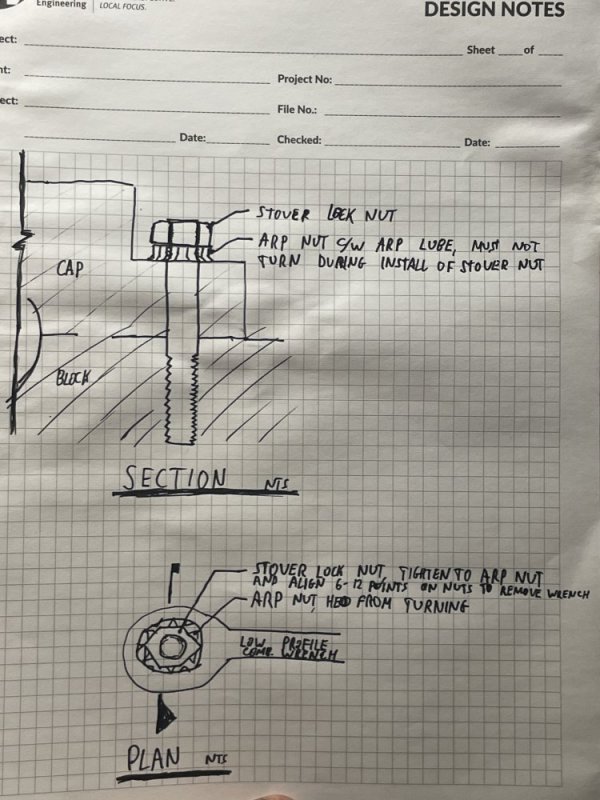 Engineering
LOCAL FOCUS.
DESIGN NOTES
ect:
Sheet of
nt:
Project No:
ect:
File No.:
Date: Checked: Date:
STOVER LOCK NUT
ARP NUT C/W ARP LUBE, MUST NOT
TURN DURING INSTALL OF STOVER NUT
CAP
BLOCK
SECTION NTS
STOVER LOCK NUT, TIGHTEN TO ARP NUT
AND ALIGN 6-12 POINTS ON NUTS TO REMOVE WRENCH
ARP NUT, HELD FROM TURNING
LOW PROFILE
COMB. WRENCH
PLAN NTS